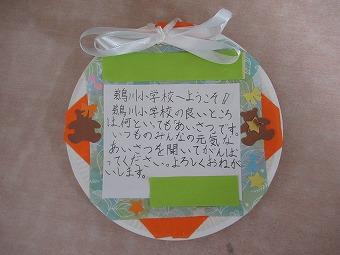 鵡川小学校へようこそ♪
鵡川小学校の良いところ
は、何といってもあいさつです。
いつものみんなの元気な
あいさつを聞いてがんば
ってください。よろしくおねが
いします。